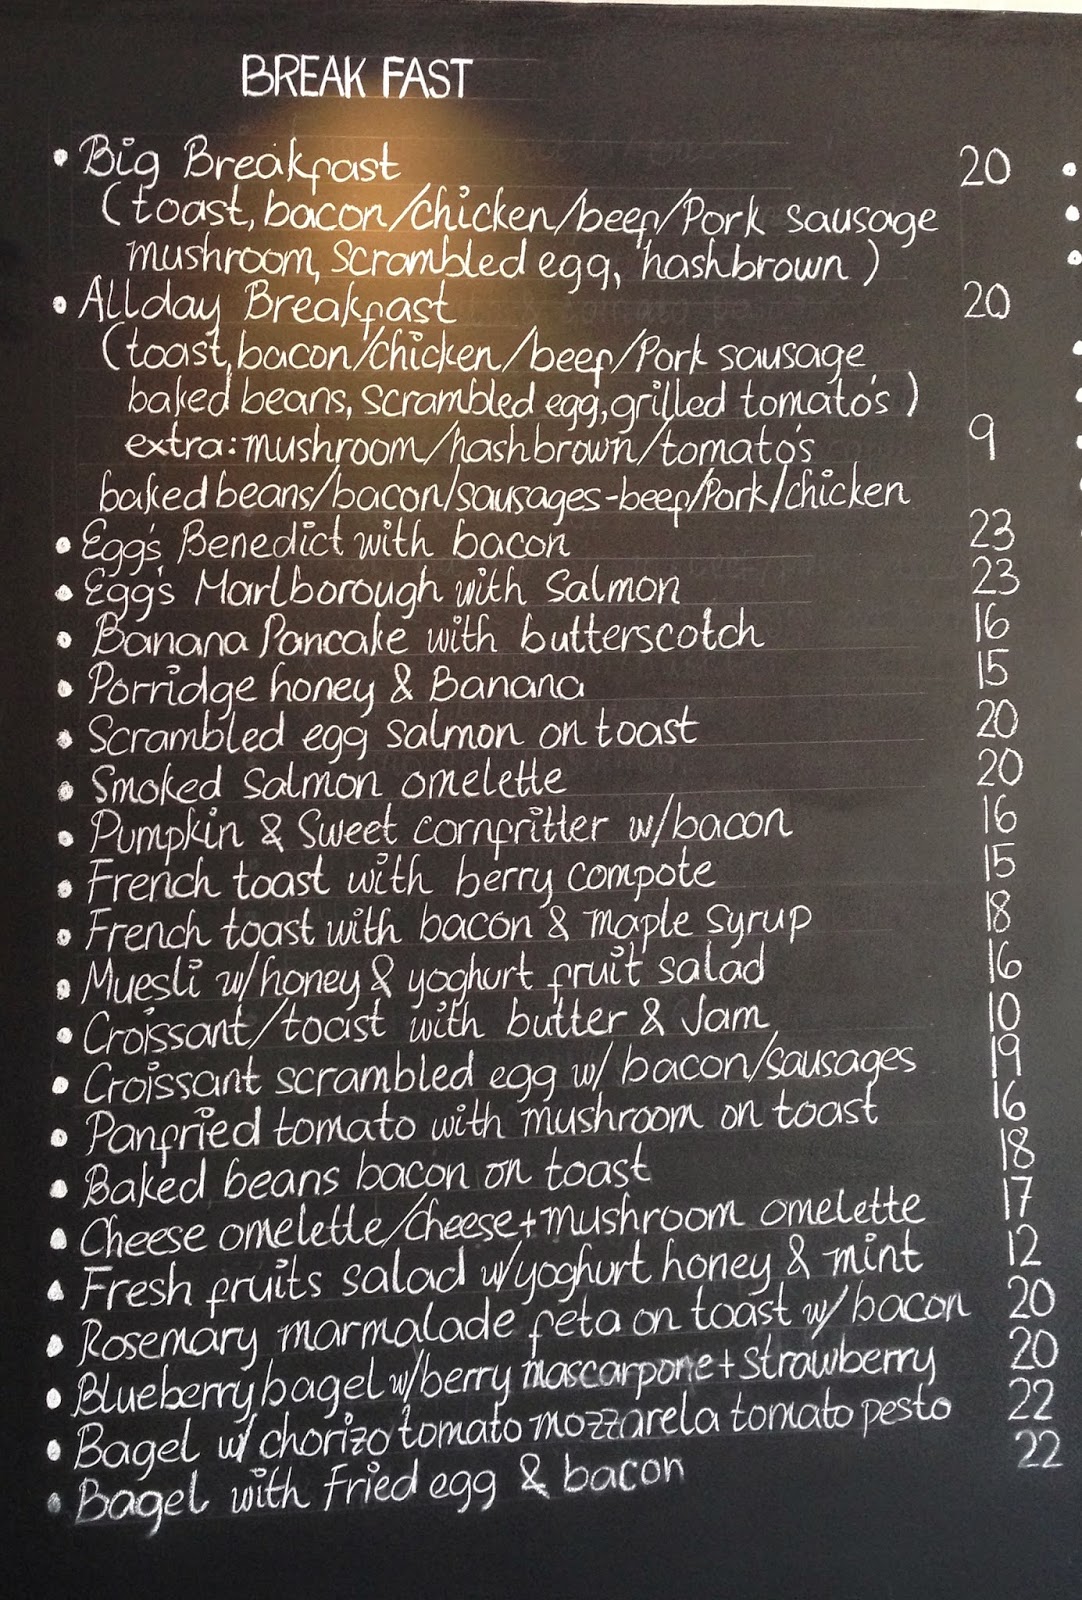 BREAK FAST
• Big Breakfast 20
(toast, bacon/chicken/beef/Pork sausage
mushroom, scrambled egg, hashbrown)
• Allday Breakfast 20
(toast, bacon/chicken/beef/Pork sausage
baked beans, scrambled egg, grilled tomato's)
extra: mushroom/hashbrown/tomato's 9
baked beans/bacon/sausages-beef/Pork/chicken
• Egg's Benedict with bacon 23
• Egg's Marlborough with Salmon 23
• Banana Pancake with butterscotch 16
• Porridge honey & Banana 15
• Scrambled egg salmon on toast 20
• Smoked salmon omelette 20
• Pumpkin & Sweet cornfritter w/bacon 16
• French toast with berry compote 15
• French toast with bacon & maple syrup 18
• Muesli w/honey & yoghurt fruit salad 16
• Croissant/toast with butter & Jam 10
• Croissant scrambled egg w/ bacon/sausages 19
• Panfried tomato with mushroom on toast 16
• Baked beans bacon on toast 18
• Cheese omelette/cheese+mushroom omelette 17
• Fresh fruits salad w/yoghurt honey & mint 12
• Rosemary marmalade feta on toast w/ bacon 20
• Blueberry bagel w/berry mascarpone+strawberry 20
• Bagel w/ chorizo tomato mozzarela tomato pesto 22
• Bagel with Fried egg & bacon 22